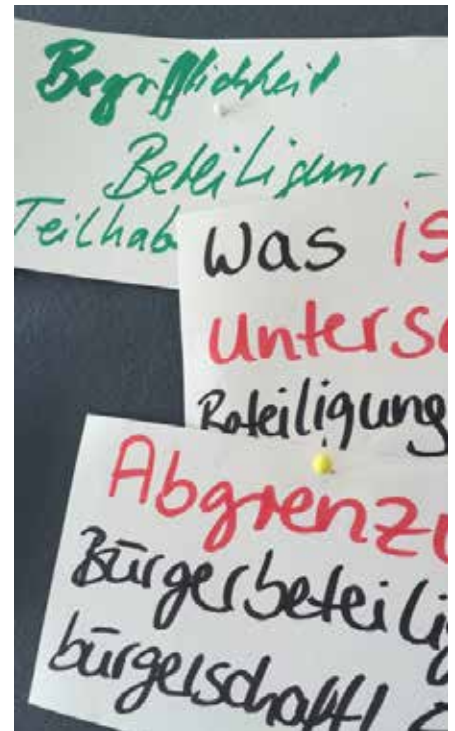 Begrifflichkeit
Beteiligung -
Teilhab
Was is
Untersc
Beteiligung
Abgrenzu
Bürgerbeteilig
bürgerschaftl